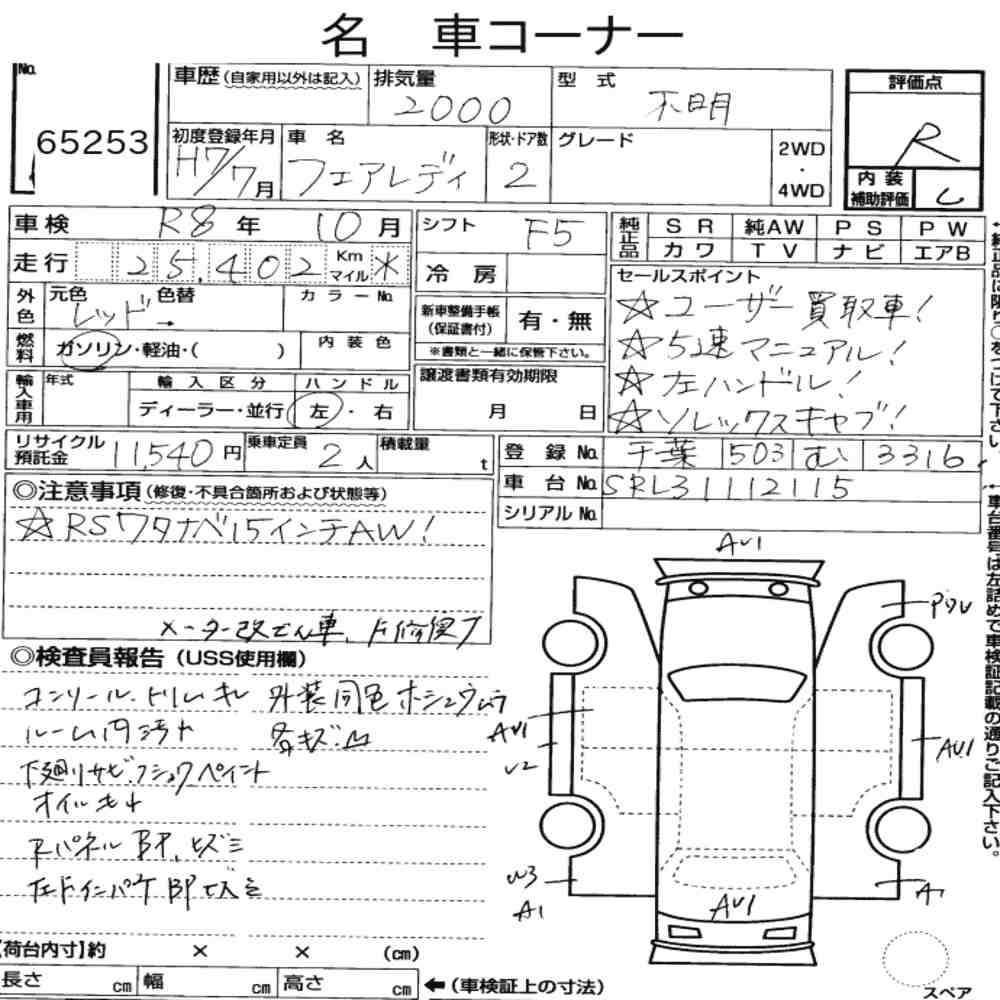 名 車コーナー
No.
65253
車歴 (自家用以外は記入)
排気量
2000
型 式
不明
評価点
R
初度登録年月
H7/7月
車 名
フェアレディ
形状・ドア数
2
グレード
2WD
・
4WD
内 装
補助評価
C
車検 R8 年 10 月
走行 25,402 Km マイル *
シフト F5
冷 房
純正品
SR 純AW PS PW
カワ TV ナビ エアB
外色
元色
レッド
色替
→
カラーNo.
燃料
ガソリン・軽油・( )
内装色
新車整備手帳
(保証書付)
有・無
※書類と一緒に保管下さい。
セールスポイント
☆ユーザー買取車!
☆5速マニュアル!
☆左ハンドル!
☆ソレックスキャブ!
輸入車用
年式
輸入区分
ディーラー・並行
ハンドル
左・右
譲渡書類有効期限
月 日
リサイクル
預託金
11,540円
乗車定員
2人
積載量
t
登録 No. 千葉 503 む 3316
車台 No. SRL31112115
シリアル No.
◎注意事項 (修復・不具合箇所および状態等)
☆RSワタナベ15インチAW!
メーター改ざん車、
◎検査員報告 (USS使用欄)
コンソール、トリムキレ
外装同色ホシュウムラ
ルーム内汚れ
各キズ、凹
下廻りサビ、フショクペイント
オイルモレ
RパネルBP、ヒズミ
左FインパケBPヒズミ
AU1
PUU
AU1
U2
AU1
W3
A1
AU1
A1
スペア
【荷台内寸】約 × × (cm)
長さ cm 幅 cm 高さ cm
←(車検証上の寸法)
↑車台番号は左詰めで車検証記載の通りご記入下さい。